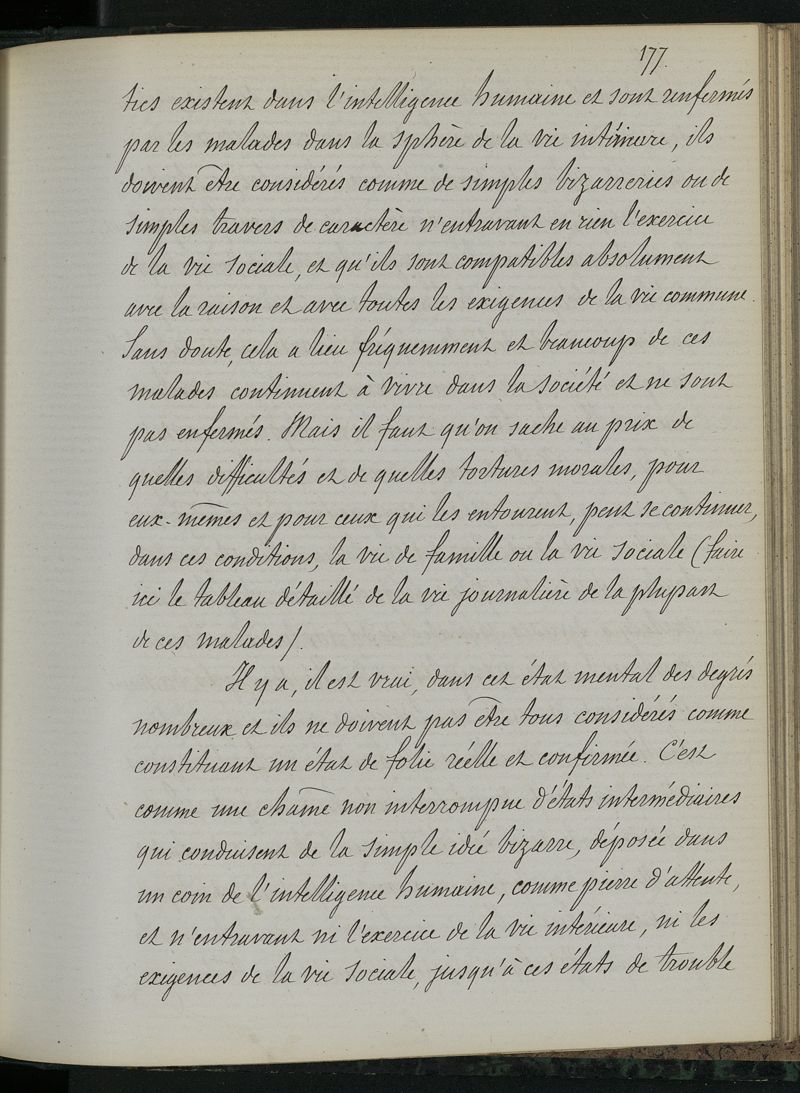 177.
ties existent dans l'intelligence humaine et sont renfermés
par les malades dans la sphère de la vie intérieure, ils
doivent être considérés comme de simples bizarreries ou de
simples travers de caractère n'entravant en rien l'exercice
de la vie sociale, et qu'ils sont compatibles absolument
avec la raison et avec toutes les exigences de la vie commune.
Sans doute, cela a lieu fréquemment et beaucoup de ces
malades continuent à vivre dans la société et ne sont
pas enfermés. Mais il faut qu'on sache au prix de
quelles difficultés et de quelles tortures morales, pour
eux-mêmes et pour ceux qui les entourent, peut se continuer,
dans ces conditions, la vie de famille ou la vie sociale (faire
ici le tableau détaillé de la vie journalière de la plupart
de ces malades).
Il y a, il est vrai, dans cet état mental des degrés
nombreux et ils ne doivent pas être tous considérés comme
constituant un état de folie réelle et confirmée. C'est
comme une chaîne non interrompue d'états intermédiaires
qui conduisent de la simple idée bizarre, déposée dans
un coin de l'intelligence humaine, comme pierre d'attente,
et n'entravant ni l'exercice de la vie intérieure, ni les
exigences de la vie sociale, jusqu'à ces états de trouble